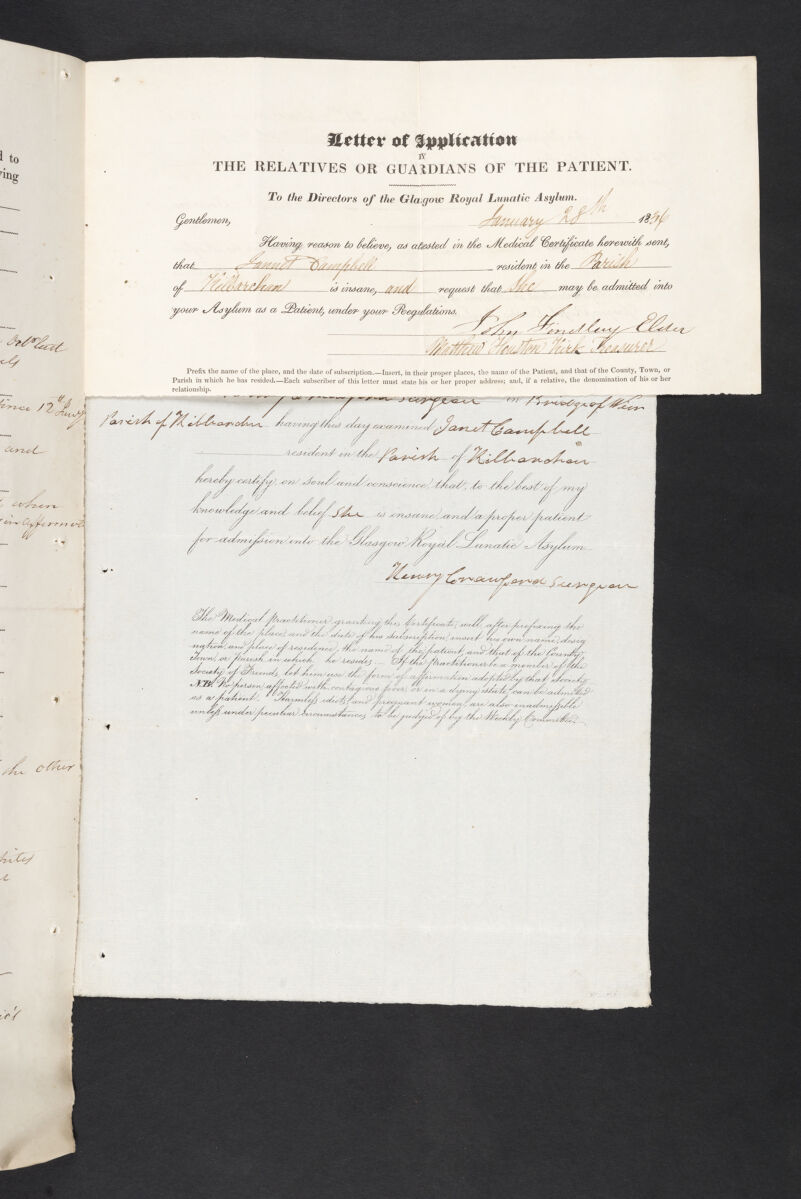 Letter of Application
BY
THE RELATIVES OR GUARDIANS OF THE PATIENT.
To the Directors of the Glasgow Royal Lunatic Asylum.
Gentlemen, January 28th 18
Having reason to believe, as atested in the Medical Certificate herewith sent,
that Jannet Campbell resident in the Parish
of Kilbarchan is insane, and request that She may be admitted into
your Asylum as a Patient, under your Regulations.
John Findlay Elder
Matthew Houston Kirk Treasurer
Prefix the name of the place, and the date of subscription.—Insert, in their proper places, the name of the Patient, and that of the County, Town, or
Parish in which he has resided.—Each subscriber of this letter must state his or her proper address; and, if a relative, the denomination of his or her
relationship.
Surgeon in Bridge of Weir
Parish of Killbarchan having this day examined Janet Campbell
resident in the Parish of Kilbarchan
hereby certify, on soul and conscience, that, to the best of my
knowledge and belief She is insane and a proper patient
for admission into the Glasgow Royal Lunatic Asylum
Henry Crawford Surgeon
The Medical Practitioner granting this Certificate, will, after prefixing the
name of the place, and the date of his subscription, insert his own name, desig
nation, and place of residence, the name of the patient, and that of the County,
Town, or parish in which he resides. – If the practitioner be a member of the
Society of Friends, let him use the form of affirmation adopted by that Society
NB. No person affected with contagious fever, or in a dying state, can be admitted
as a patient. Harmless idiots, and pregnant women, are also inadmissible
unless under peculiar circumstances to be judged of by the Weekly Committee.
d to
ving
Octr last
since 12th
and
when
the other